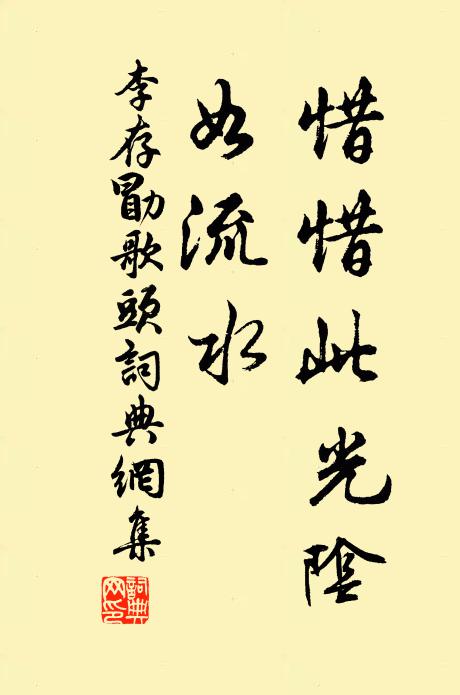 惜惜此光陰
如流水
李存勗歌頭詞典網集
詞典網印